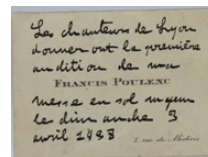 Les chanteurs de Lyon
donneront la première
audition de ma
FRANCIS POULENC
messe en sol majeur
le dimanche 3
avril 1938
5 rue de Médicis